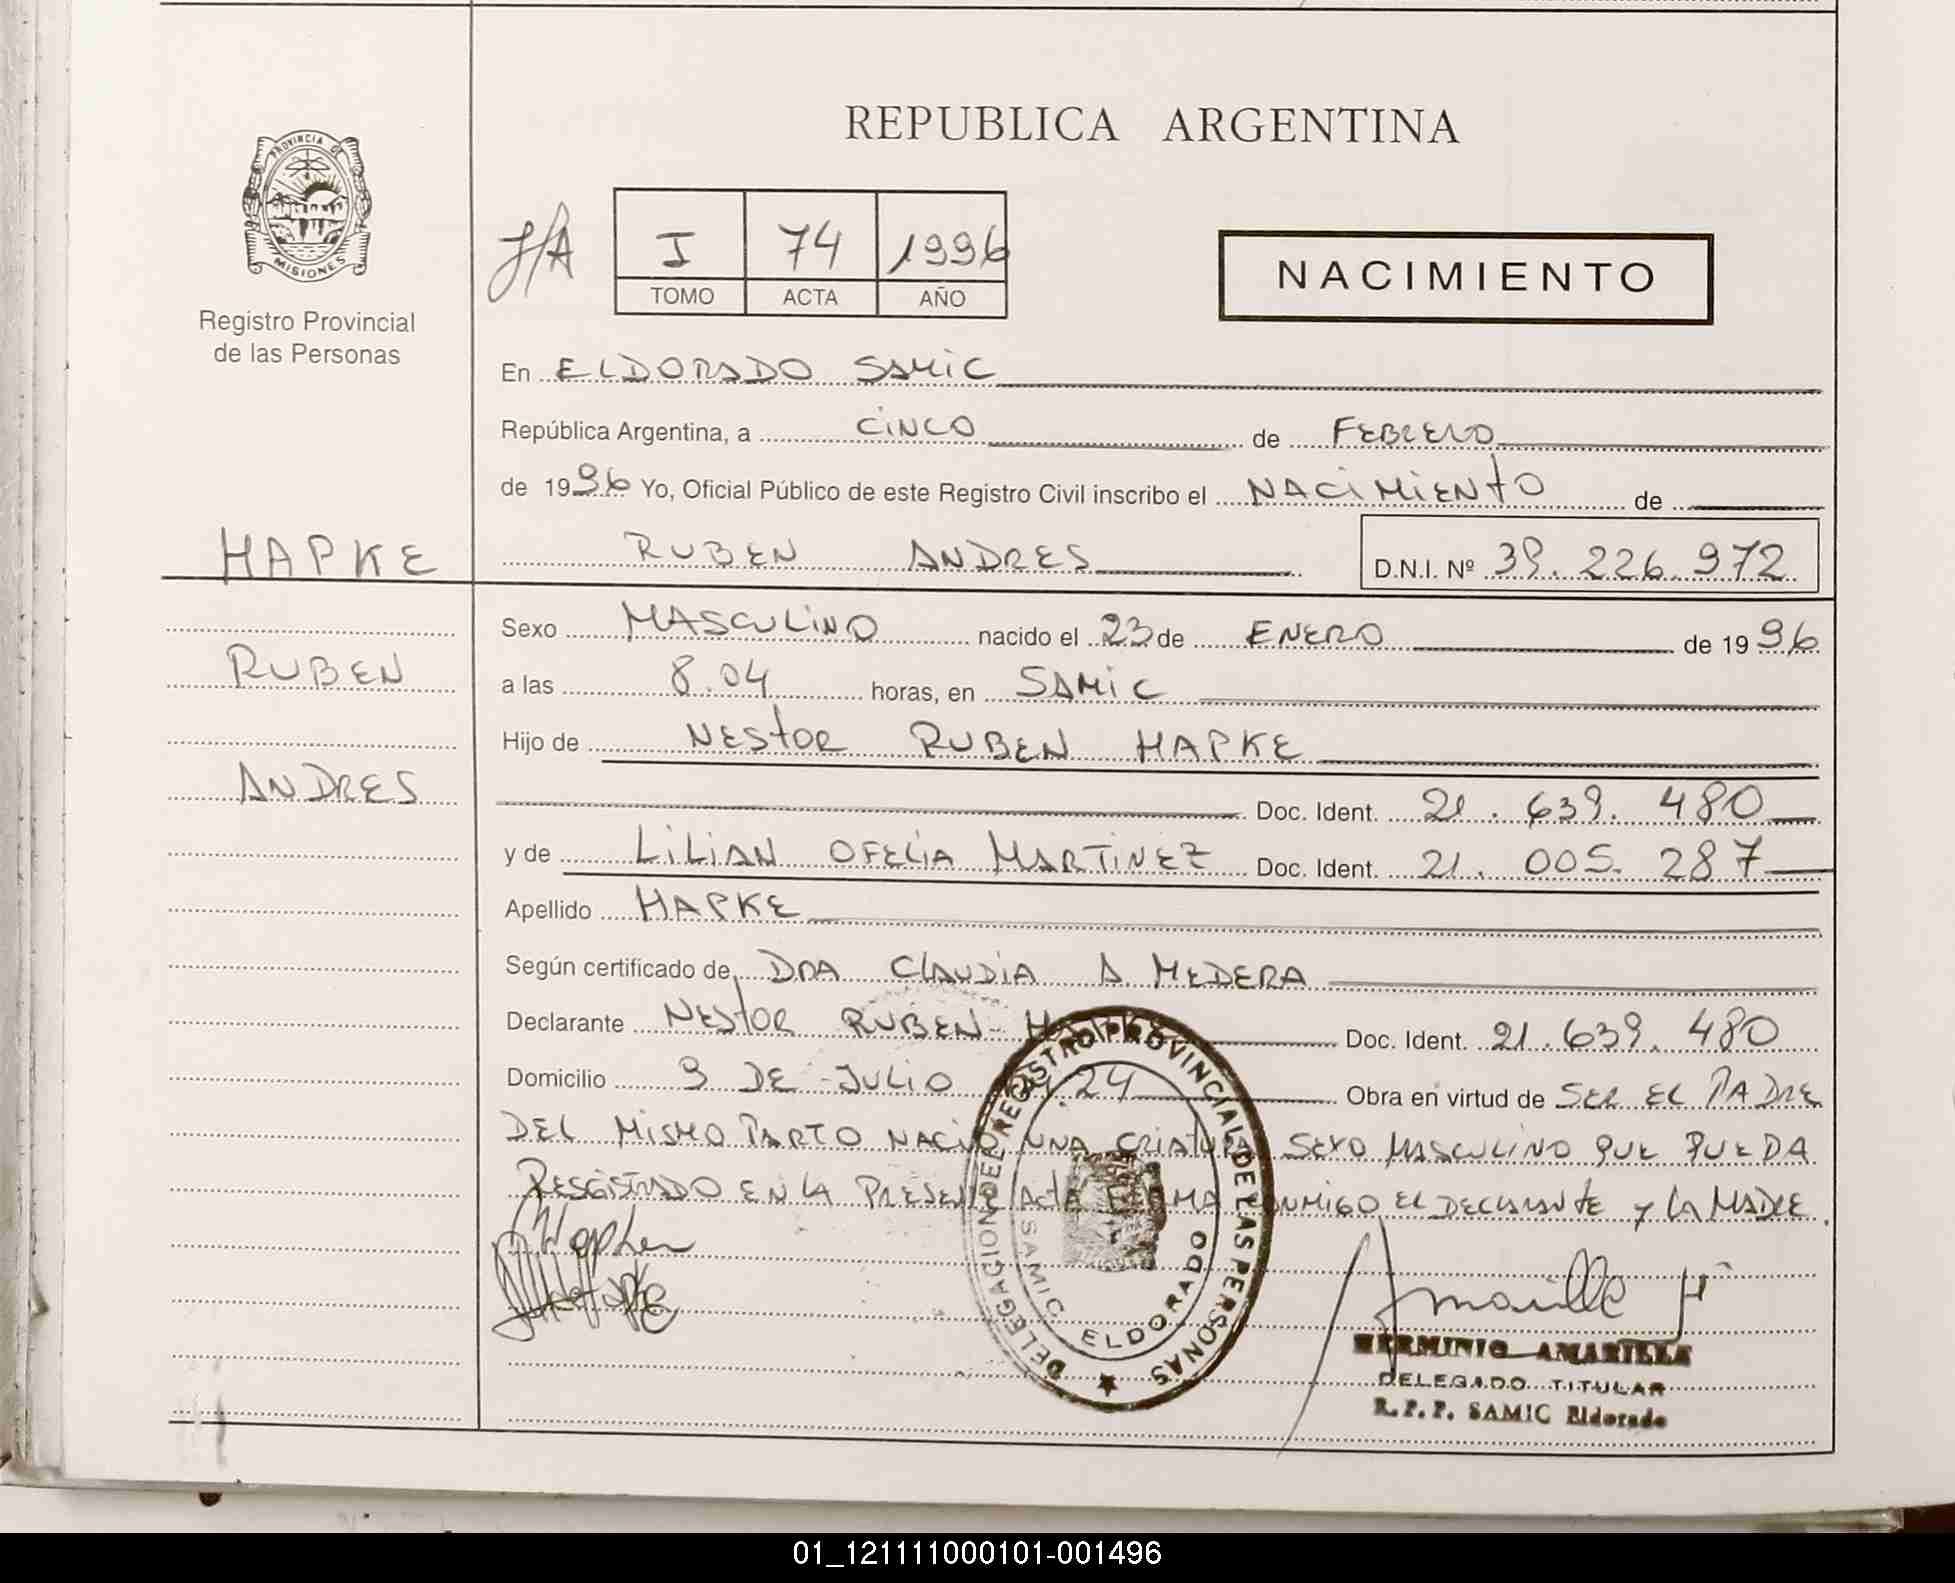 REPUBLICA ARGENTINA
PROVINCIA DE
MISIONES
Registro Provincial
de las Personas
J/A
I 74 1996
TOMO ACTA AÑO
NACIMIENTO
En ELDORADO SAMIC
República Argentina, a CINCO de FEBRERO
de 1996 Yo, Oficial Público de este Registro Civil inscribo el NACIMIENTO de
HAPKE
RUBEN ANDRES D.N.I. Nº 39.226.972
Sexo MASCULINO nacido el 23 de ENERO de 1996
RUBEN
a las 8.04 horas, en SAMIC
Hijo de NESTOR RUBEN HAPKE
ANDRES
Doc. Ident. 21.639.480
y de LILIAN OFELIA MARTINEZ Doc. Ident. 21.005.287
Apellido HAPKE
Según certificado de DRA CLAUDIA A MEDERA
Declarante NESTOR RUBEN HAPKE Doc. Ident. 21.639.480
Domicilio 9 DE JULIO 24 Obra en virtud de SER EL PADRE
DEL MISMO PARTO NACIO UNA CRIATURA SEXO MASCULINO QUE PUEDA
RESGISTRADO EN LA PRESENTE ACTA FIRMA CONMIGO EL DECLARANTE Y LA MADRE.
DELEGACION DEL REGISTRO PROVINCIAL DE LAS PERSONAS
SAMIC ELDORADO
Amarilla H
HERMINIO AMARILLA
DELEGADO TITULAR
R.P.P. SAMIC Eldorado
01_121111000101-001496